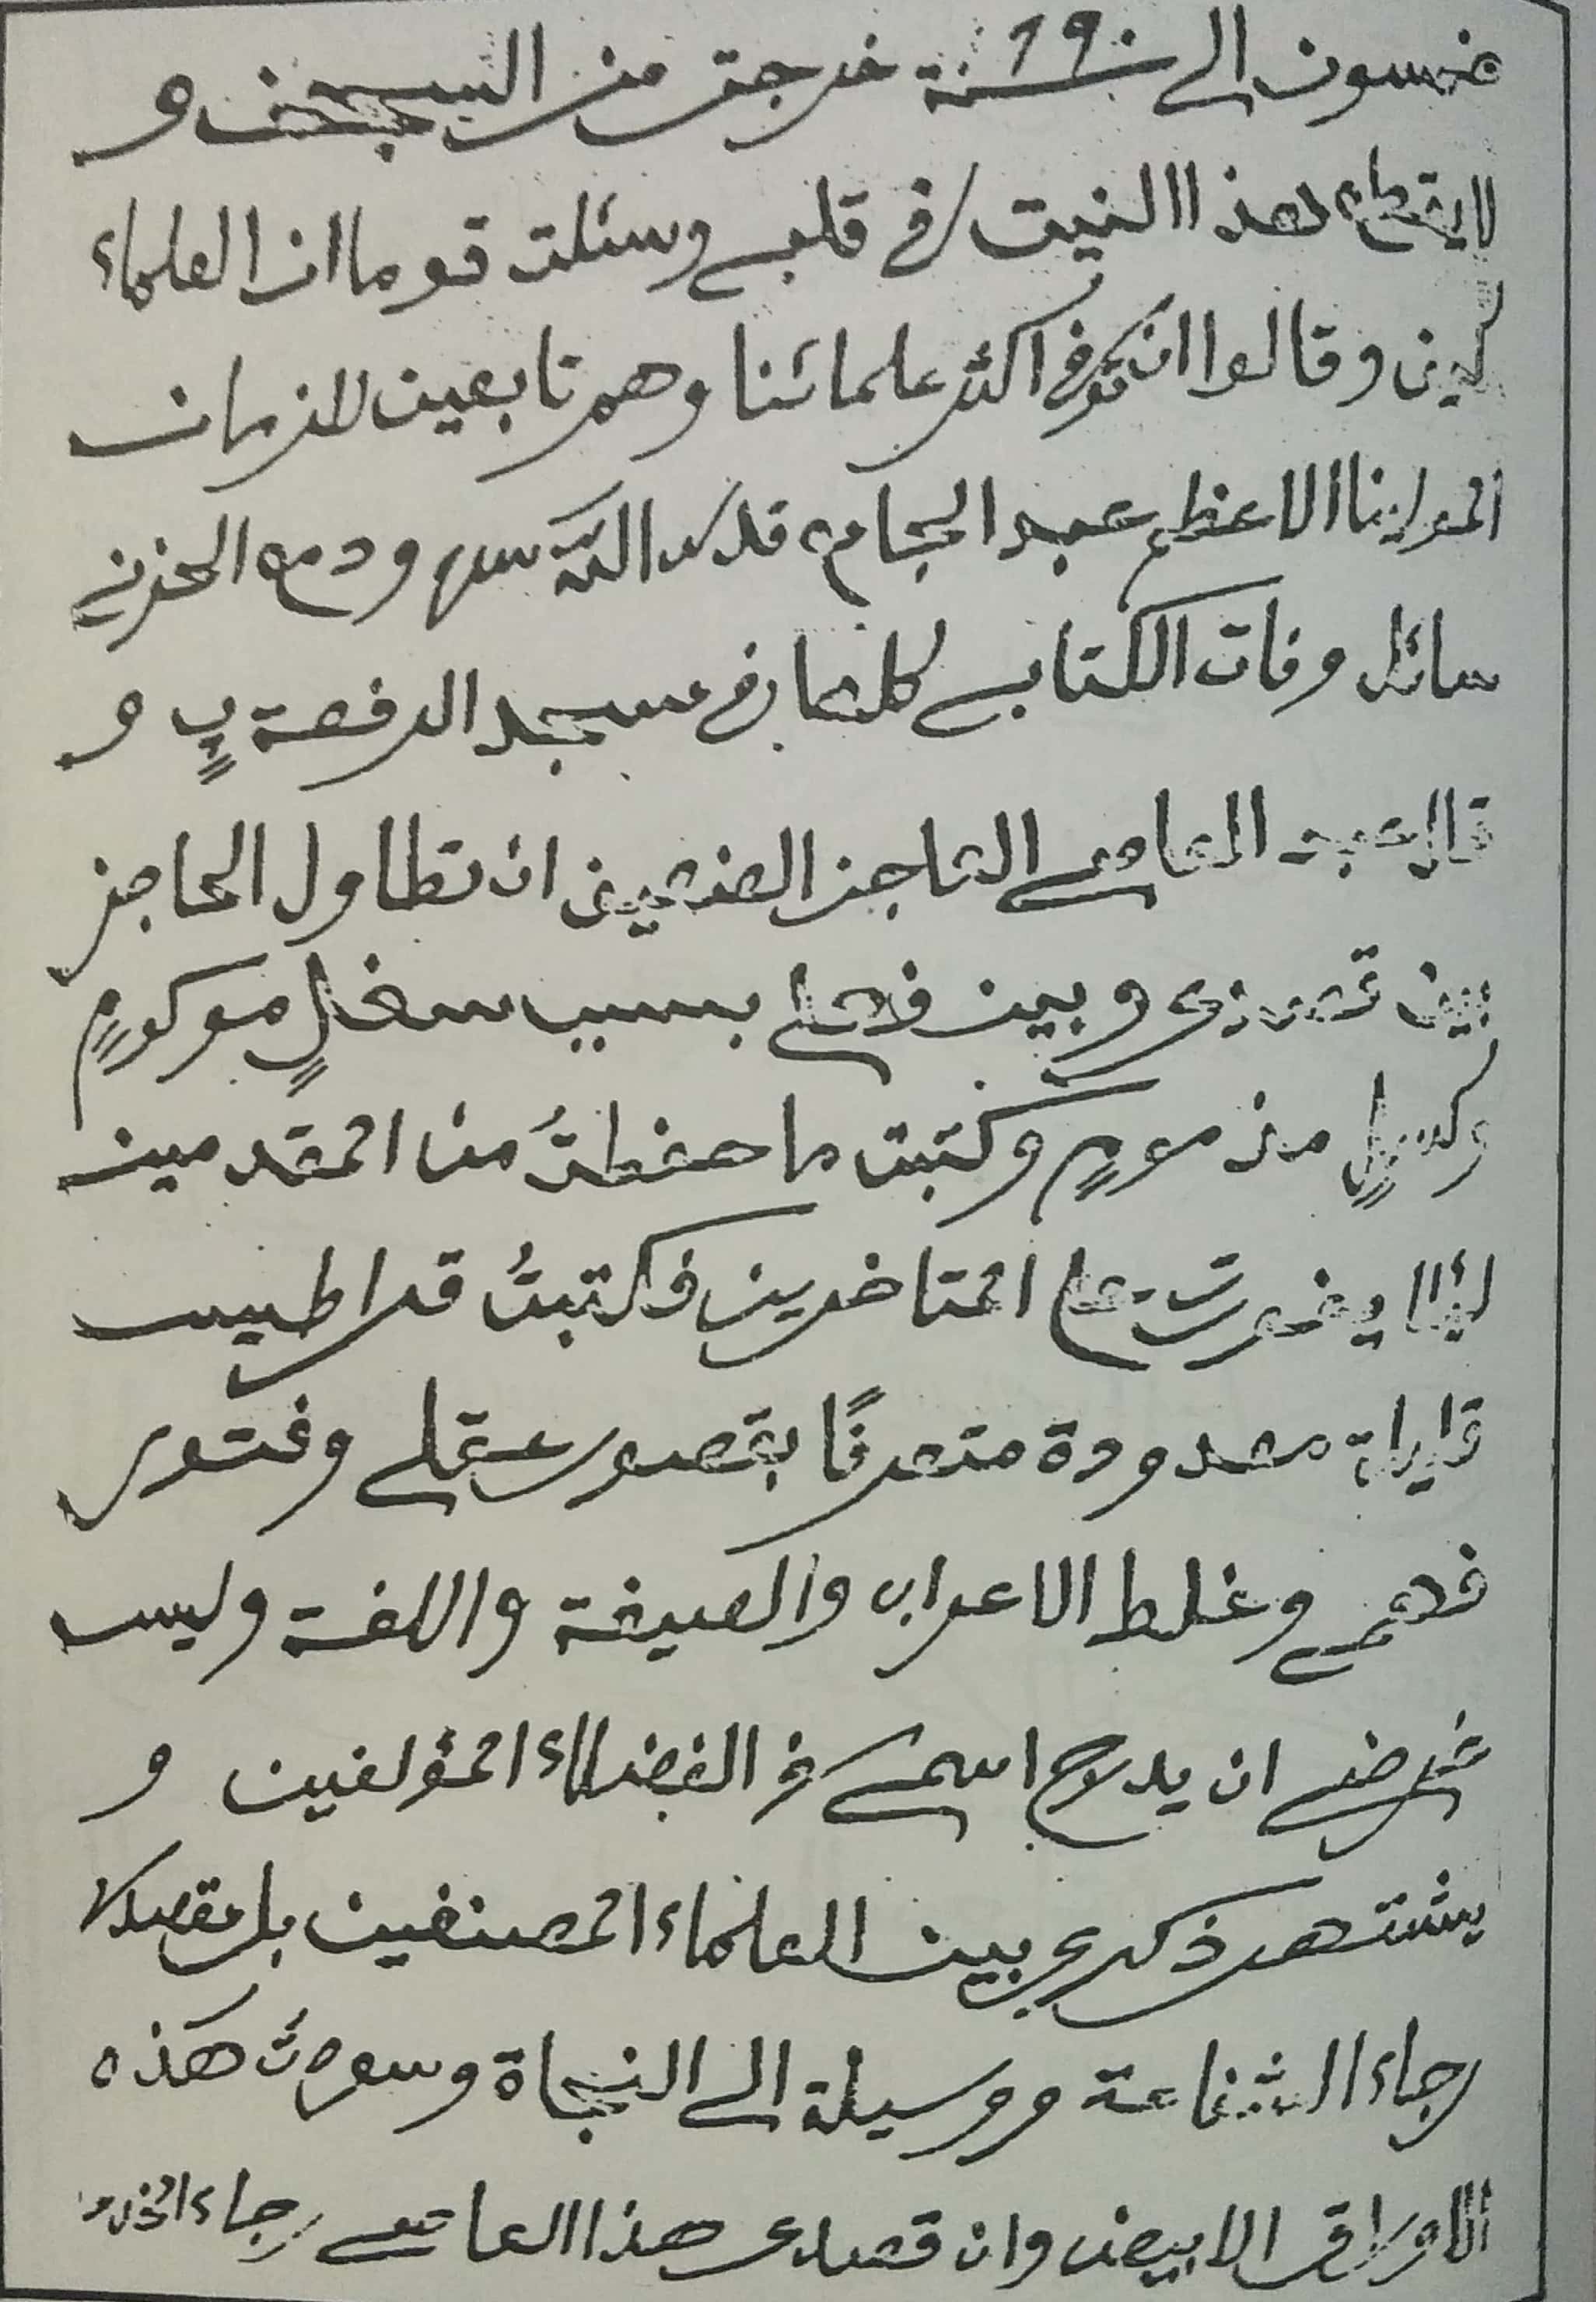 خمسون الى ١٩٠ سنة خرجت من السجن و
لا يقطع هذا النيت في قلبي وسئلت قوما ان العلماء
وقالوا ان توفي اكثر علمائنا وهم تابعين للزمان
المولينا الاعظم عبد الجامى قدس الله سره ودمع الحزين
سائل وفات الكتاب كلها في مسجد الدفعة پ و
قال عبد العاصى العاجز الضعيف ان تطاول الحاجز
بين قصدى وبين فعلى بسبب سغل موكوم
وكسل مذموم وكتبت ما حفظت من المقدمين
لئلا يفوت على المتاخرين فكتبت قراطيس
قليلة معدودة متعرفًا بقصور عقلى وفتور
فهمى وغلط الاعراب والصيغة واللغة وليس
غرضى ان يدرج اسمى في الفضلاء المؤلفين و
يشتهر ذكرى بين العلماء المصنفين بل مقصدى
رجاء الشفاعة ووسيلة الى النجاة وسودت هذه
الاوراق الابيض وان قصدى هذا العاصى رجاء